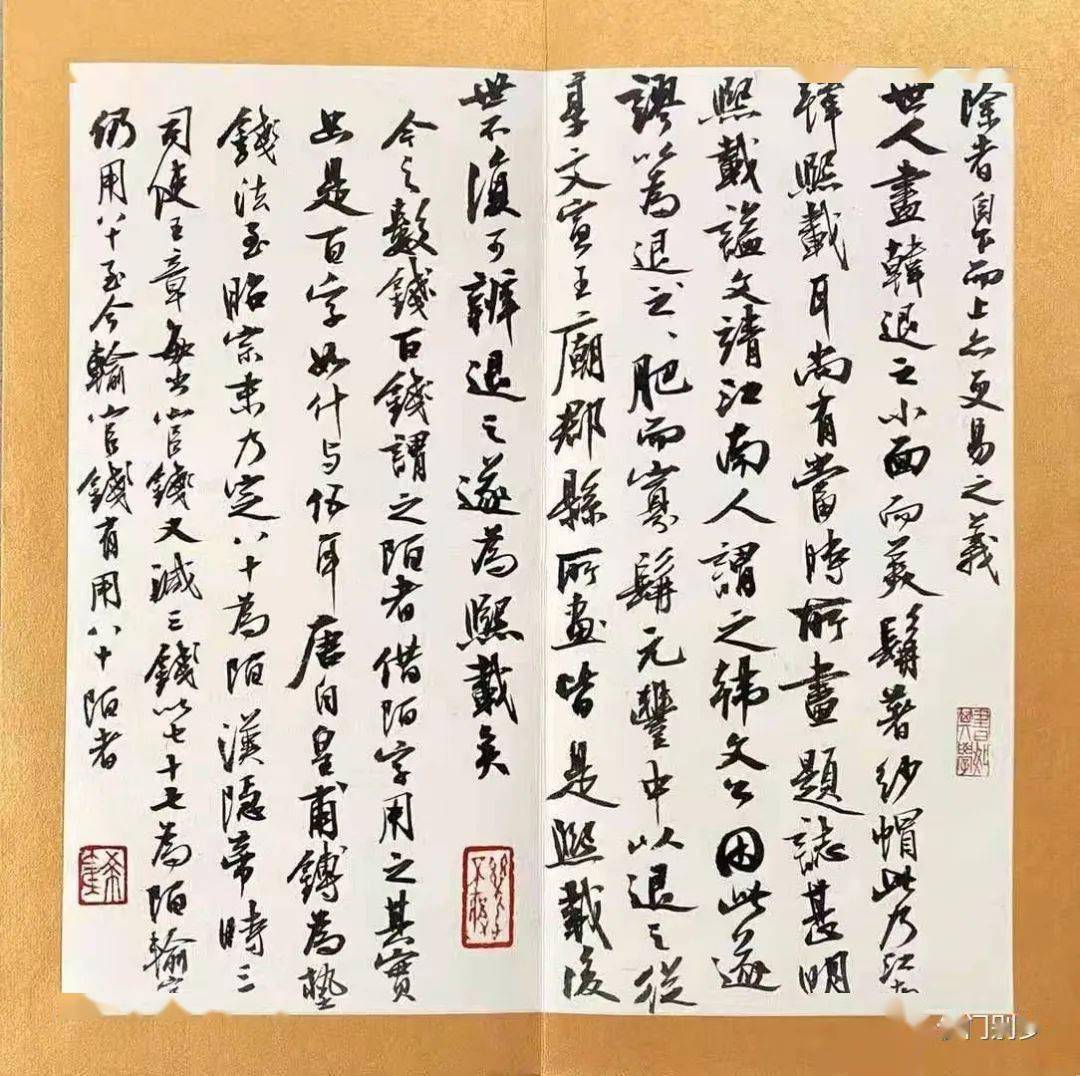 除者自下而上亦更易之義
世人畫韓退之小面而美髯著紗帽此乃江南
韓熙載耳尚有當時所畫題誌甚明
熙載謚文靖江南人謂之韓文公因此遂
謬以為退之、肥而寡髯元豐中以退之從
享文宣王廟郡縣所畫皆是熙載後
世不復可辨退之遂為熙載矣
今之數錢百錢謂之陌者借陌字用之其實
只是百字如什与伍耳唐自皇甫鎛為墊
錢法至昭宗末乃定八十為陌漢隱帝時三
司使王章每出官錢又減三錢以七十七為陌輸官
仍用八十至今輸官錢有用八十陌者
書如其學